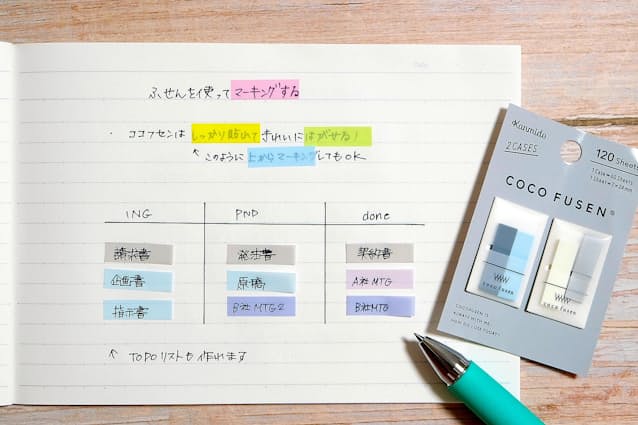 ふせんを使ってマーキングする
・ ココフセンは しっかり貼れて きれいに はがせる!
↖ このように 上からマーキングしてもOK
ING PND done
請求書 発注書 契約書
企画書 原稿 A社MTG
指示書 B社MTG2 B社MTG
↖ TODOリストも作れます
Kanmido
2 CASES
120 Sheets
COCO FUSEN®
coco fusen
coco fusen
COCOFUSEN IS
ALWAYS WITH ME.
HOW DO I USE TODAY?